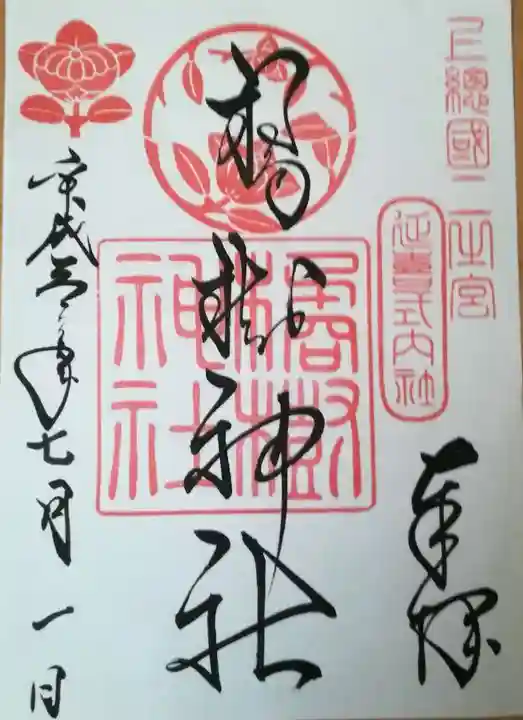 上總國二之宮
延喜式内社
奉拝
橘樹神社
橘樹神社
平成三十年七月一日